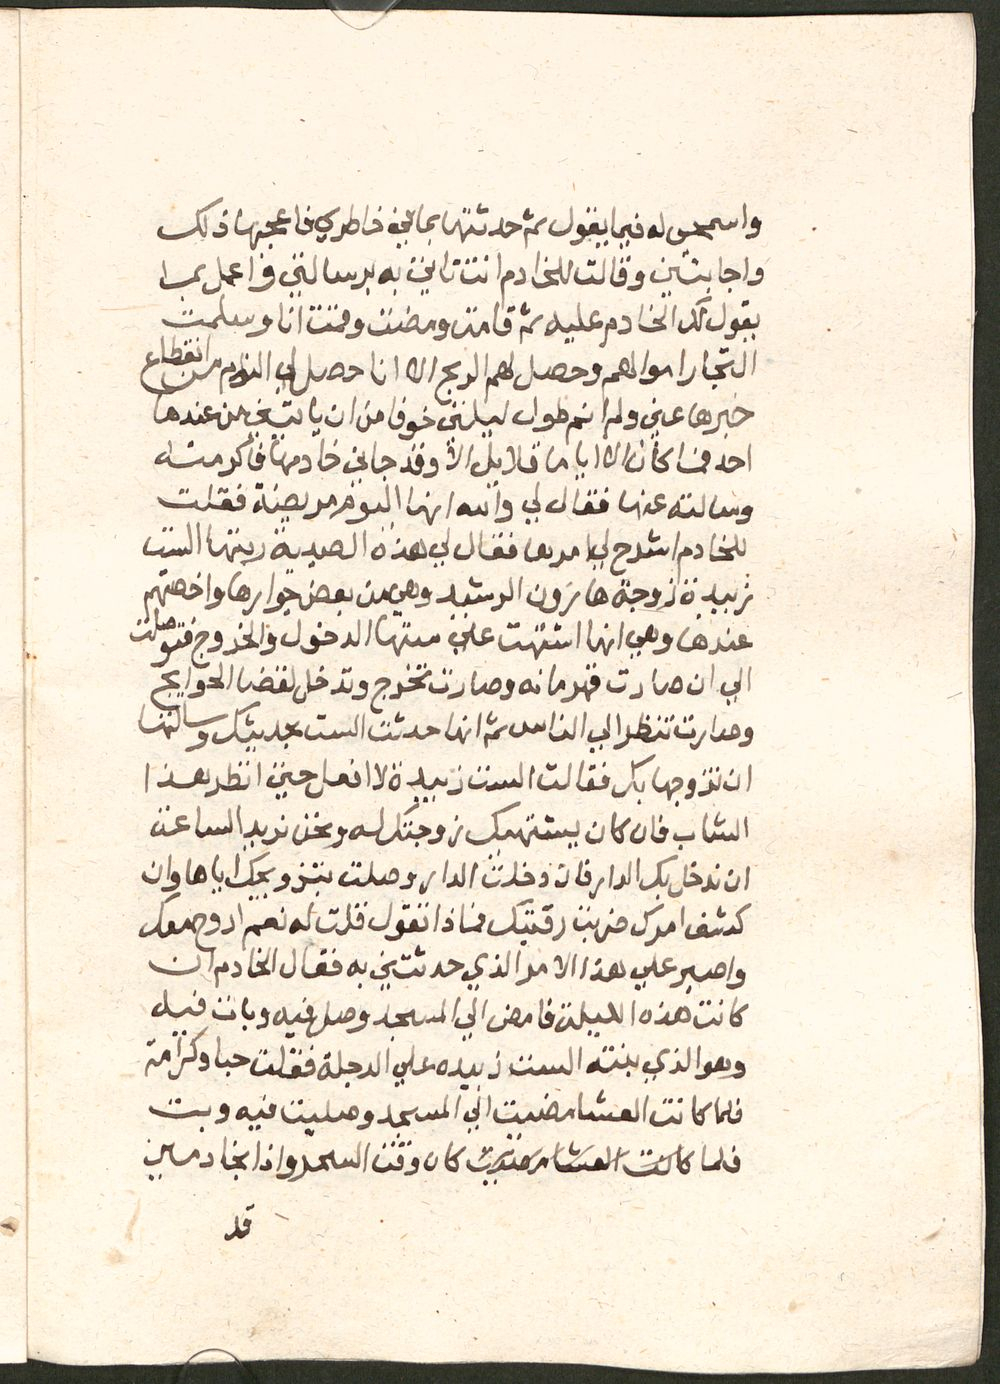 واسمعي له فيما يقول ثم حدثتها بما في خاطري فاعجبها ذلك
واجابتني وقالت للخادم انت تاتي به برسالتي واعمل بما
يقول لك الخادم عليه ثم قامت ومضت وقمت انا وسلمت
التجار اموالهم وحصل لهم الربح الا انا حصل لي الندم من انقطاع
خبرها عني ولم انم طول ليلتي خوفا من ان ياتيني من عندها
احد فما كان الا اياما قلايل الا وقد جاني خادمها فاكرمته
وسالته عنها فقال لي والله انها اليوم مريضة فقلت
للخادم اشرح لي امرها فقال لي هذه الصبية ربتها الست
زبيدة زوجة هارون الرشيد وهي من بعض جوارها واخصتهم
عندها وهي انها اشتهت على ستها الدخول والخروج فتوصلت
الي ان صارت قهرمانه وصارت تخرج وتدخل لقضا الحوايج
وصارت تنظر الي الناس ثم انها حدثت الست بحديثك وسالتها
ان تزوجها بك فقالت الست زبيدة لا افعل حتى انظر هذا
الشاب فان كان يشتهيك زوجتك له ونحن نريد الساعة
ان ندخل بك الدار فان دخلت الدار وصلت بتزويجك اياها وان
كشف امرك ضربت رقبتك فماذا تقول قلت له نعم اروح معك
واصبر علي هذا الامر الذي حدثتني به فقال الخادم ان
كانت هذه الليلة فامض الي المسجد وصل فيه وبات فيه
وهو الذي بنته الست زبيده علي الدجلة فقلت حبا وكرامة
فلما كانت العشا مضيت الي المسجد وصليت فيه وبت
فلما كان وقت السحر واذا بخادمين
قد